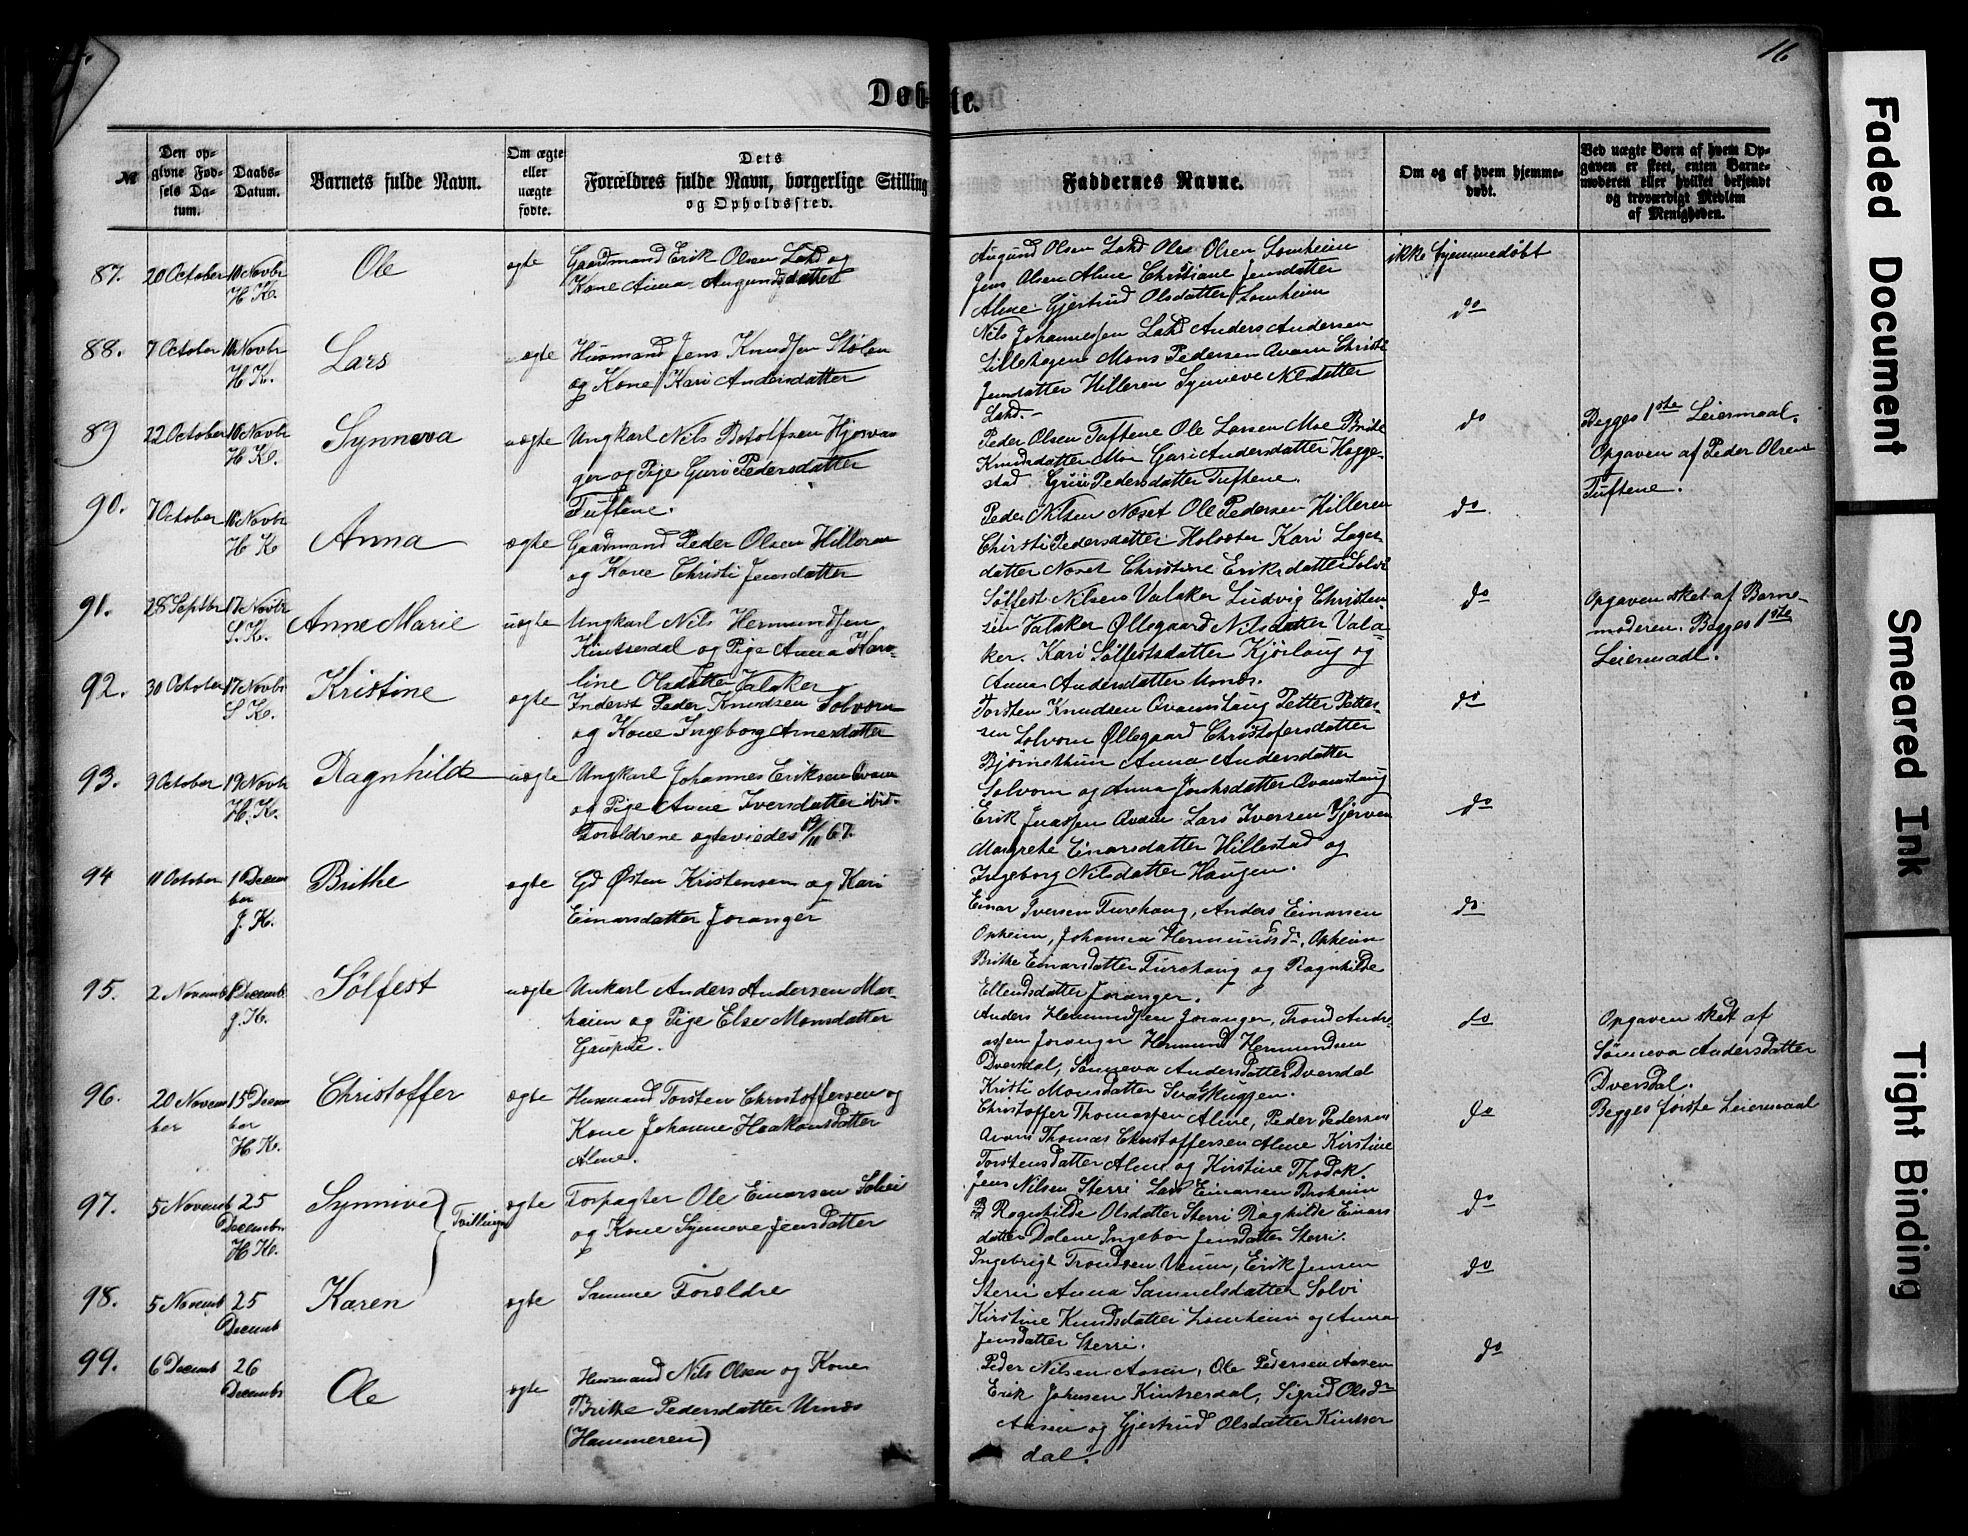 16
Døbte.
№
Den opgivne Fødsels Datum.
Daabs-Datum.
Barnets fulde Navn.
Om ægte eller uægte fødte.
Dets Forældres fulde Navn, borgerlige Stilling og Opholdssted.
Faddernes Navne.
Om og af hvem hjemmedøbt.
Ved uægte Børn af hvem Opgaven er skeet, enten Barnemoderen eller hvilket bekjendt og troværdigt Medlem af Menigheden.
87. 20 October 10 Novbr H. K. Ole ægte
Gaardmand Erik Olsen Lahd og
Kone Anna Augundsdatter
Augund Olsen Lahd Ole Olsen Lomheim
Jens Olsen Alme Christiane Jensdatter
Alme Gjertrud Olsdatter Lomheim
ikke hjemmedøbt
88. 7 October 10 Novbr H. K. Lars ægte
Husmand Jens Knudsen Stølen
og Kone Kari Andersdatter
Nils Johannessen Lahd Anders Andersen
Lillehagen Mons Pedersen Qvam Christi
Jensdatter Hilleren Synneve Nilsdatter
Lahd.
do
89 22 October 10 Novbr H. K. Synneva uægte
Ungkarl Nils Botolfsen Hjorvan
ger og Pige Guri Pedersdatter
Tuftene.
Peder Olsen Tuftene Ole Larsen Moe Brithe
Knudsdatter Moe Gari Andersdatter Hegge-
stad Guri Pedersdatter Tuftene.
do
Begges 1ste Leiermaal.
Opgaven af Peder Olsen
Tuftene.
90. 7 October 10 Novbr H. K. Anna ægte
Gaardmand Peder Olsen Hilleren
og Kone Christi Jensdatter
Peder Nilsen Næset Ole Pedersen Hilleren
Christi Pedersdatter Kari
datter Næset Christine Eriksdatter Solvi
do
91. 28 Septbr 17 Novbr S. K. Anne Marie uægte
Ungkarl Nils Hermundsen
Kintserdal og Pige Anna Karo-
line Olsdatter Valaker
Sølfest Nilsen Valaker Ludvig Christen-
sen Valaker Øllegaard Nilsdatter Vala-
ker. Kari Sølfestsdatter Kjørlaug og
Anna Andersdatter
do
Opgaven sket af Barne-
moderen. Begges 1ste
Leiermaal.
92. 30 October 17 Novbr S. K. Kristine ægte
Inderst Peder Knudsen Solvorn
og Kone Ingeborg Arnesdatter
Torsten Knudsen Qvamshaug Petter Petter-
sen Solvorn Øllegaard Christofersdatter
Bjørnethun Anna Andersdatter
Solvorn og Anna Qvamshaug
do
93. 9 October 19 Novbr H. K. Ragnhilde uægte
Ungkarl Johannes Eriksen Qvam
og Pige Anne Iversdatter ibid.
Forældrene ægteviedes 19/11 67.
Erik Qvam Lars Iversen
Margrete Einarsdatter Hillestad og
Ingeborg Nilsdatter Haugen.
do
94 11 October 1 Decem
ber
J. K. Brithe ægte
Gd Østen Kristensen og Kari
Einarsdatter Joranger
Einar Iversen Furehaug, Anders Einarsen
Opheim, Johanna Hermundsdr, Opheim
Brithe Einarsdatter Furehaug og Ragnhilde
Ellendsdatter Joranger.
do
95. 2 Novemb 1 Decemb.
J. K. Sølfest uægte
Unkarl Anders Andersen Mar-
heim og Pige Else Monsdatter
Gaupne.
Anders Hermundsen Joranger, Trond Andre-
assen Joranger Hermund Hermundsen
Dversdal, Sønneva Andersdatter Dversdal
Kristi Monsdatter Svadskuggen.
do
Opgaven sket af
Sønneva Andersdatter
Dversdal.
Begges første Leiermaal
96. 20 Novem
ber 15 Decem
ber
H. K. Christoffer ægte
Husmand Torsten Christoffersen og
Kone Johanne Haakonsdatter
Alme.
Christoffer Thomassen Alme, Peder Pedersen
Qvam Thomas Christoffersen Alme Kirstine
Torstensdatter Alme og Kirstine
do
97. 5 Novemb 25
Decembr
H. K. Synnive ægte
Tvillinger
Forpagter Ole Einarsen
og Kone Synneve Jensdatter
Jens Nilsen Sterri Lars Einarsen
Rognhilde Olsdatter Sterri Raghilde Einars
datter Dalene Ingebor Jensdatter Sterri.
do
98. 5 Novemb 25
Decemb Karen ægte
Samme Forældre
Ingebrigt Trondsen Erik Jensen
Sterri Anna Samuelsdatter Solvi
Kirstine Knudsdatter Lomheim og Anna
Jensdatter Sterri.
do
99. 6 Decemb 26
Decembr Ole ægte
Husmand Nils Olsen og Kone
Brithe Pedersdatter Urnæs
(Hammeren)
Peder Nilsen Aasen, Ole Pedersen Aasen
Erik Johnsen Kintserdal, Sigrid Olsdr
Aasen og Gjertrud Olsdatter Kintser
dal.
do
Faded Document
Smeared Ink
Tight Binding